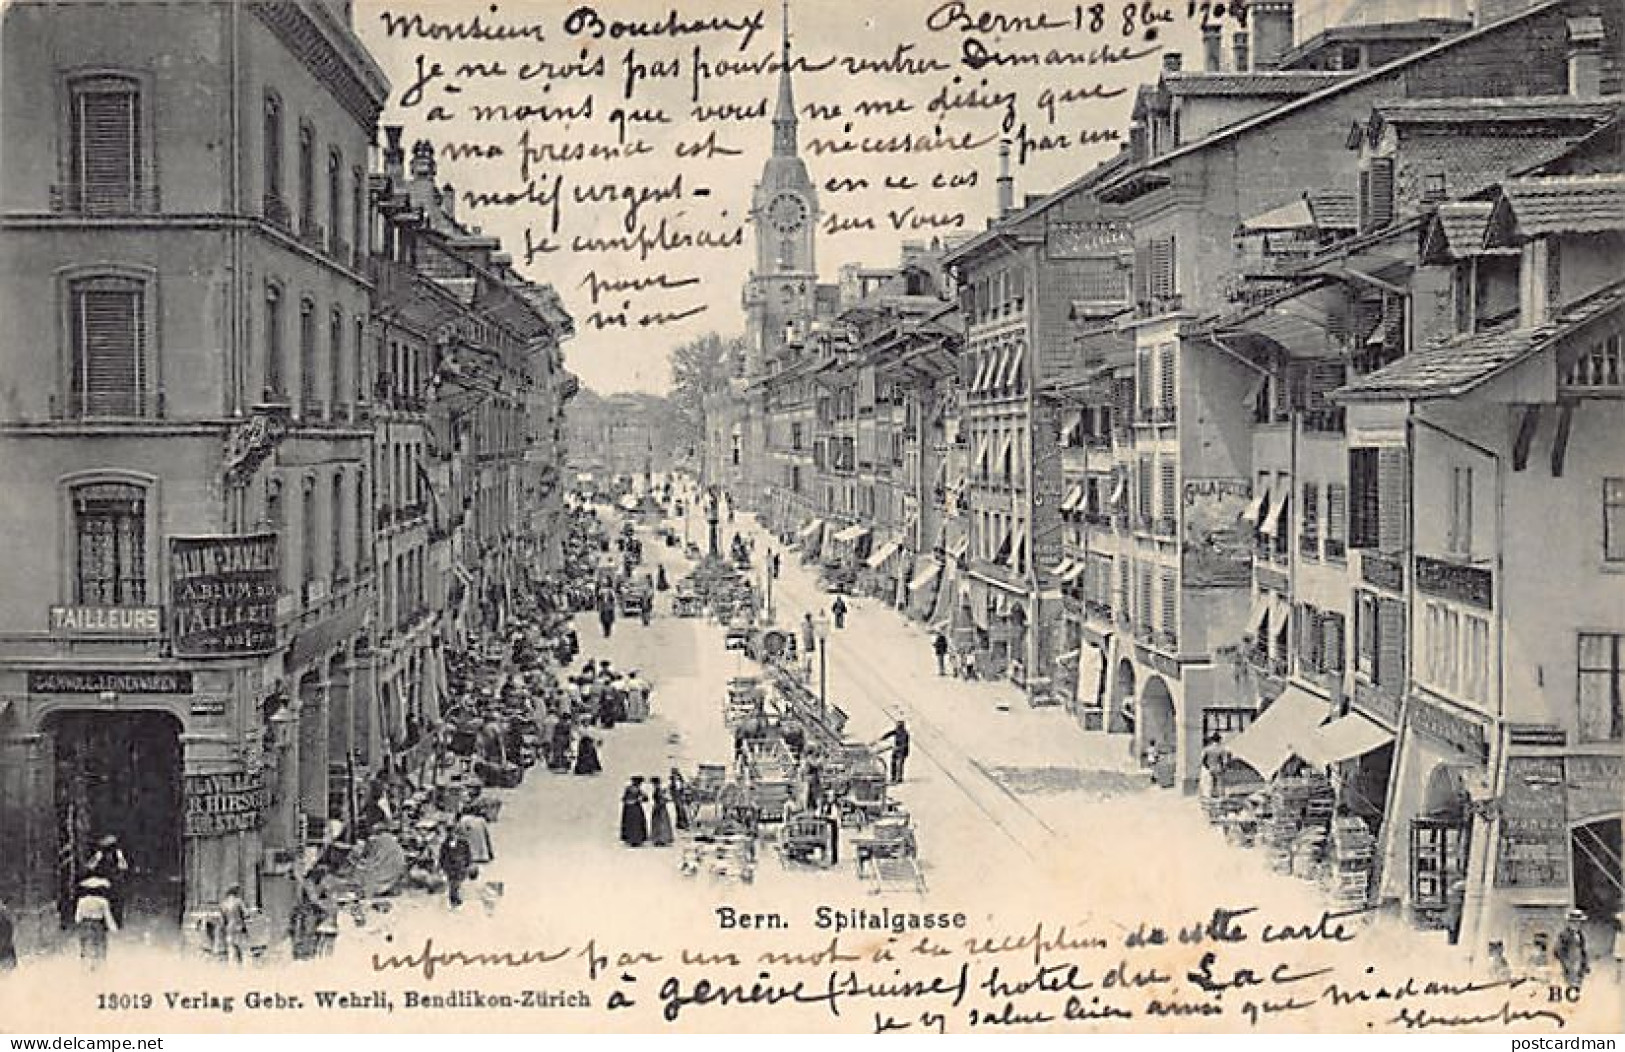 Monsieur Bouchoux Berne 18 8bre
Je ne crois pas pouvoir rentrer Dimanche
à moins que vous ne me disiez que
ma présence est nécessaire par un
motif urgent - en ce cas
Je complérais sur Vous
pour
m'en
TAILLEURS
A. BLUM
TAILLEURS
BAUMWOLL & LEINENWAREN
HIRSCH
GALAPETER
Bern. Spitalgasse
informer par un mot à la réception de cette carte
à Genève (Suisse) hotel du Lac
Je vs salue bien ainsi que madame
13019 Verlag Gebr. Wehrli, Bendlikon-Zürich
BC
postcardman